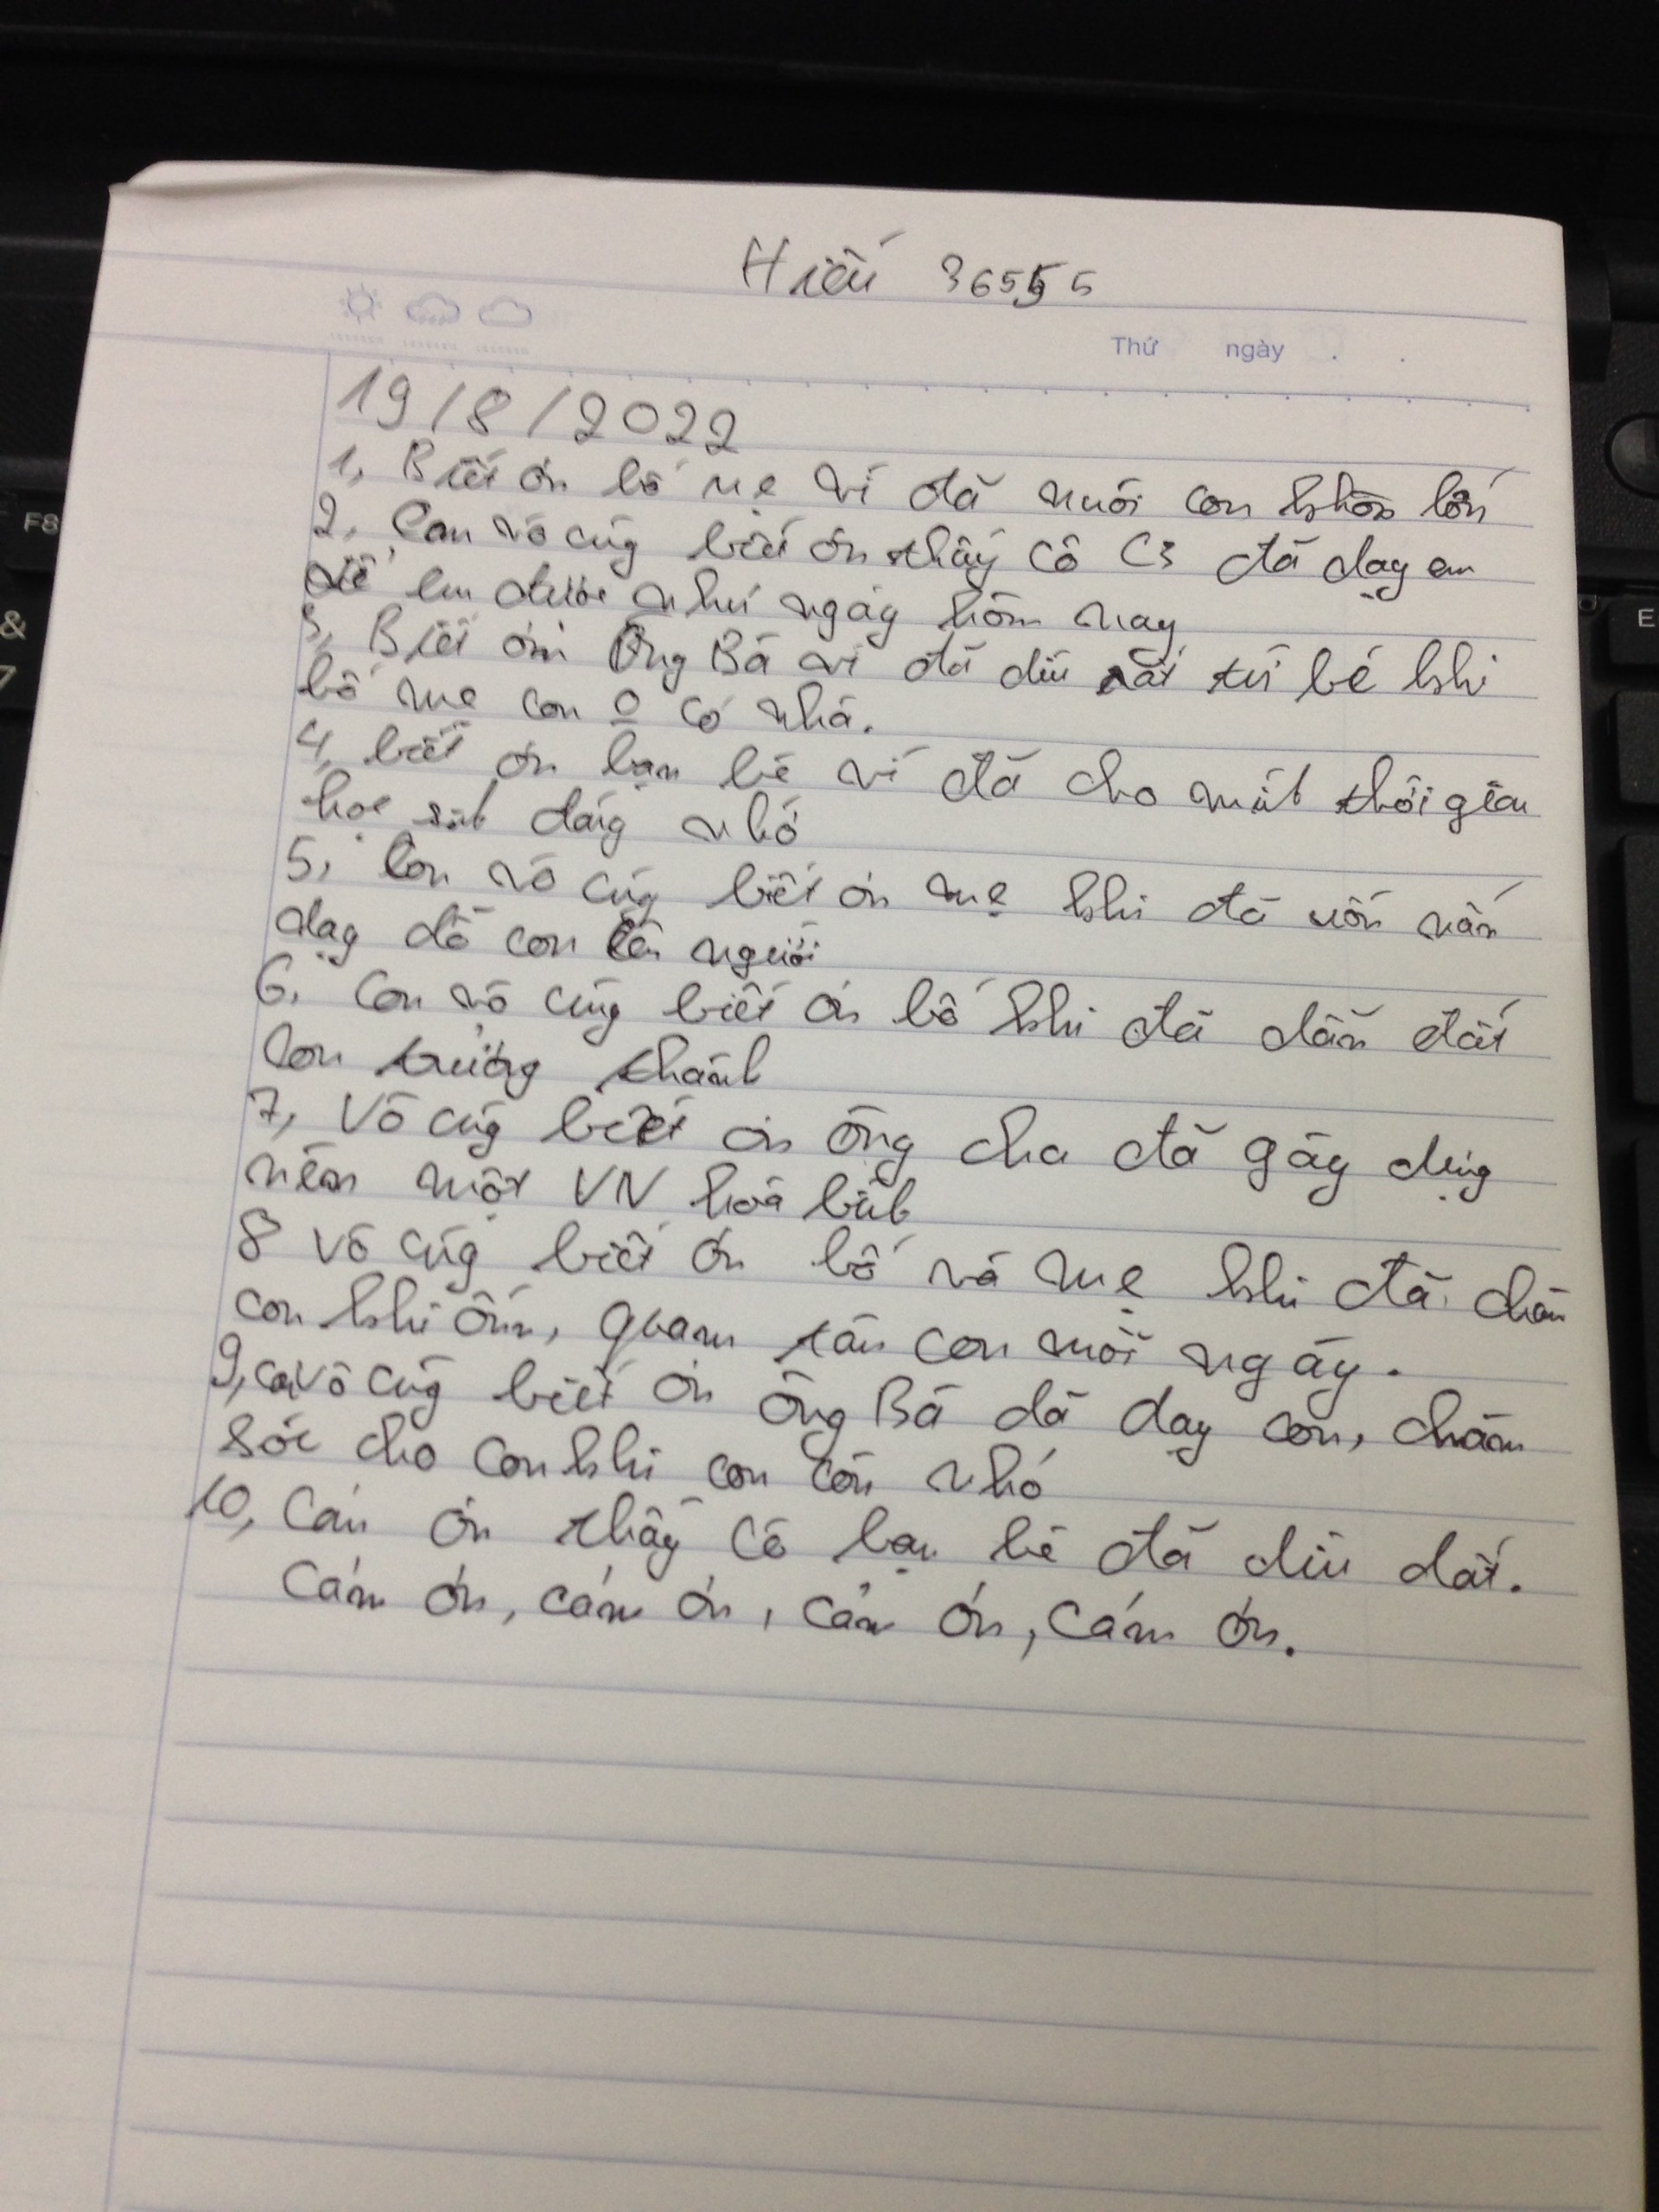 Hiếu 36555
Thứ ngày . .
19/8/2022
1, Biết ơn bố mẹ vì đã nuôi con khôn lớn
2, Con vô cùng biết ơn thầy cô C3 đã dạy em
để em được như ngày hôm nay
3, Biết ơn Ông Bà vì đã dìu dắt từ bé khi
bố mẹ con o có nhà.
4, biết ơn bạn bè vì đã cho mình thời gian
học sinh đáng nhớ
5, Con vô cùng biết ơn mẹ khi đã uốn nắn
dạy dỗ con lên người
6, Con vô cùng biết ơn bố khi đã dẫn dắt
con trưởng thành
7, Vô cùng biết ơn ông cha đã gây dựng
nên một VN hoà bình
8 Vô cùng biết ơn bố và mẹ khi đã chăm
con khi ốm, quam tâm con mỗi ngày.
9, con vô cùng biết ơn ông Bà đã dạy con, chăm
sóc cho con khi con còn nhỏ
10, Cảm ơn thầy cô bạn bè đã dìu dắt.
Cảm ơn, cảm ơn, cảm ơn, cảm ơn.
F8
&
7
E